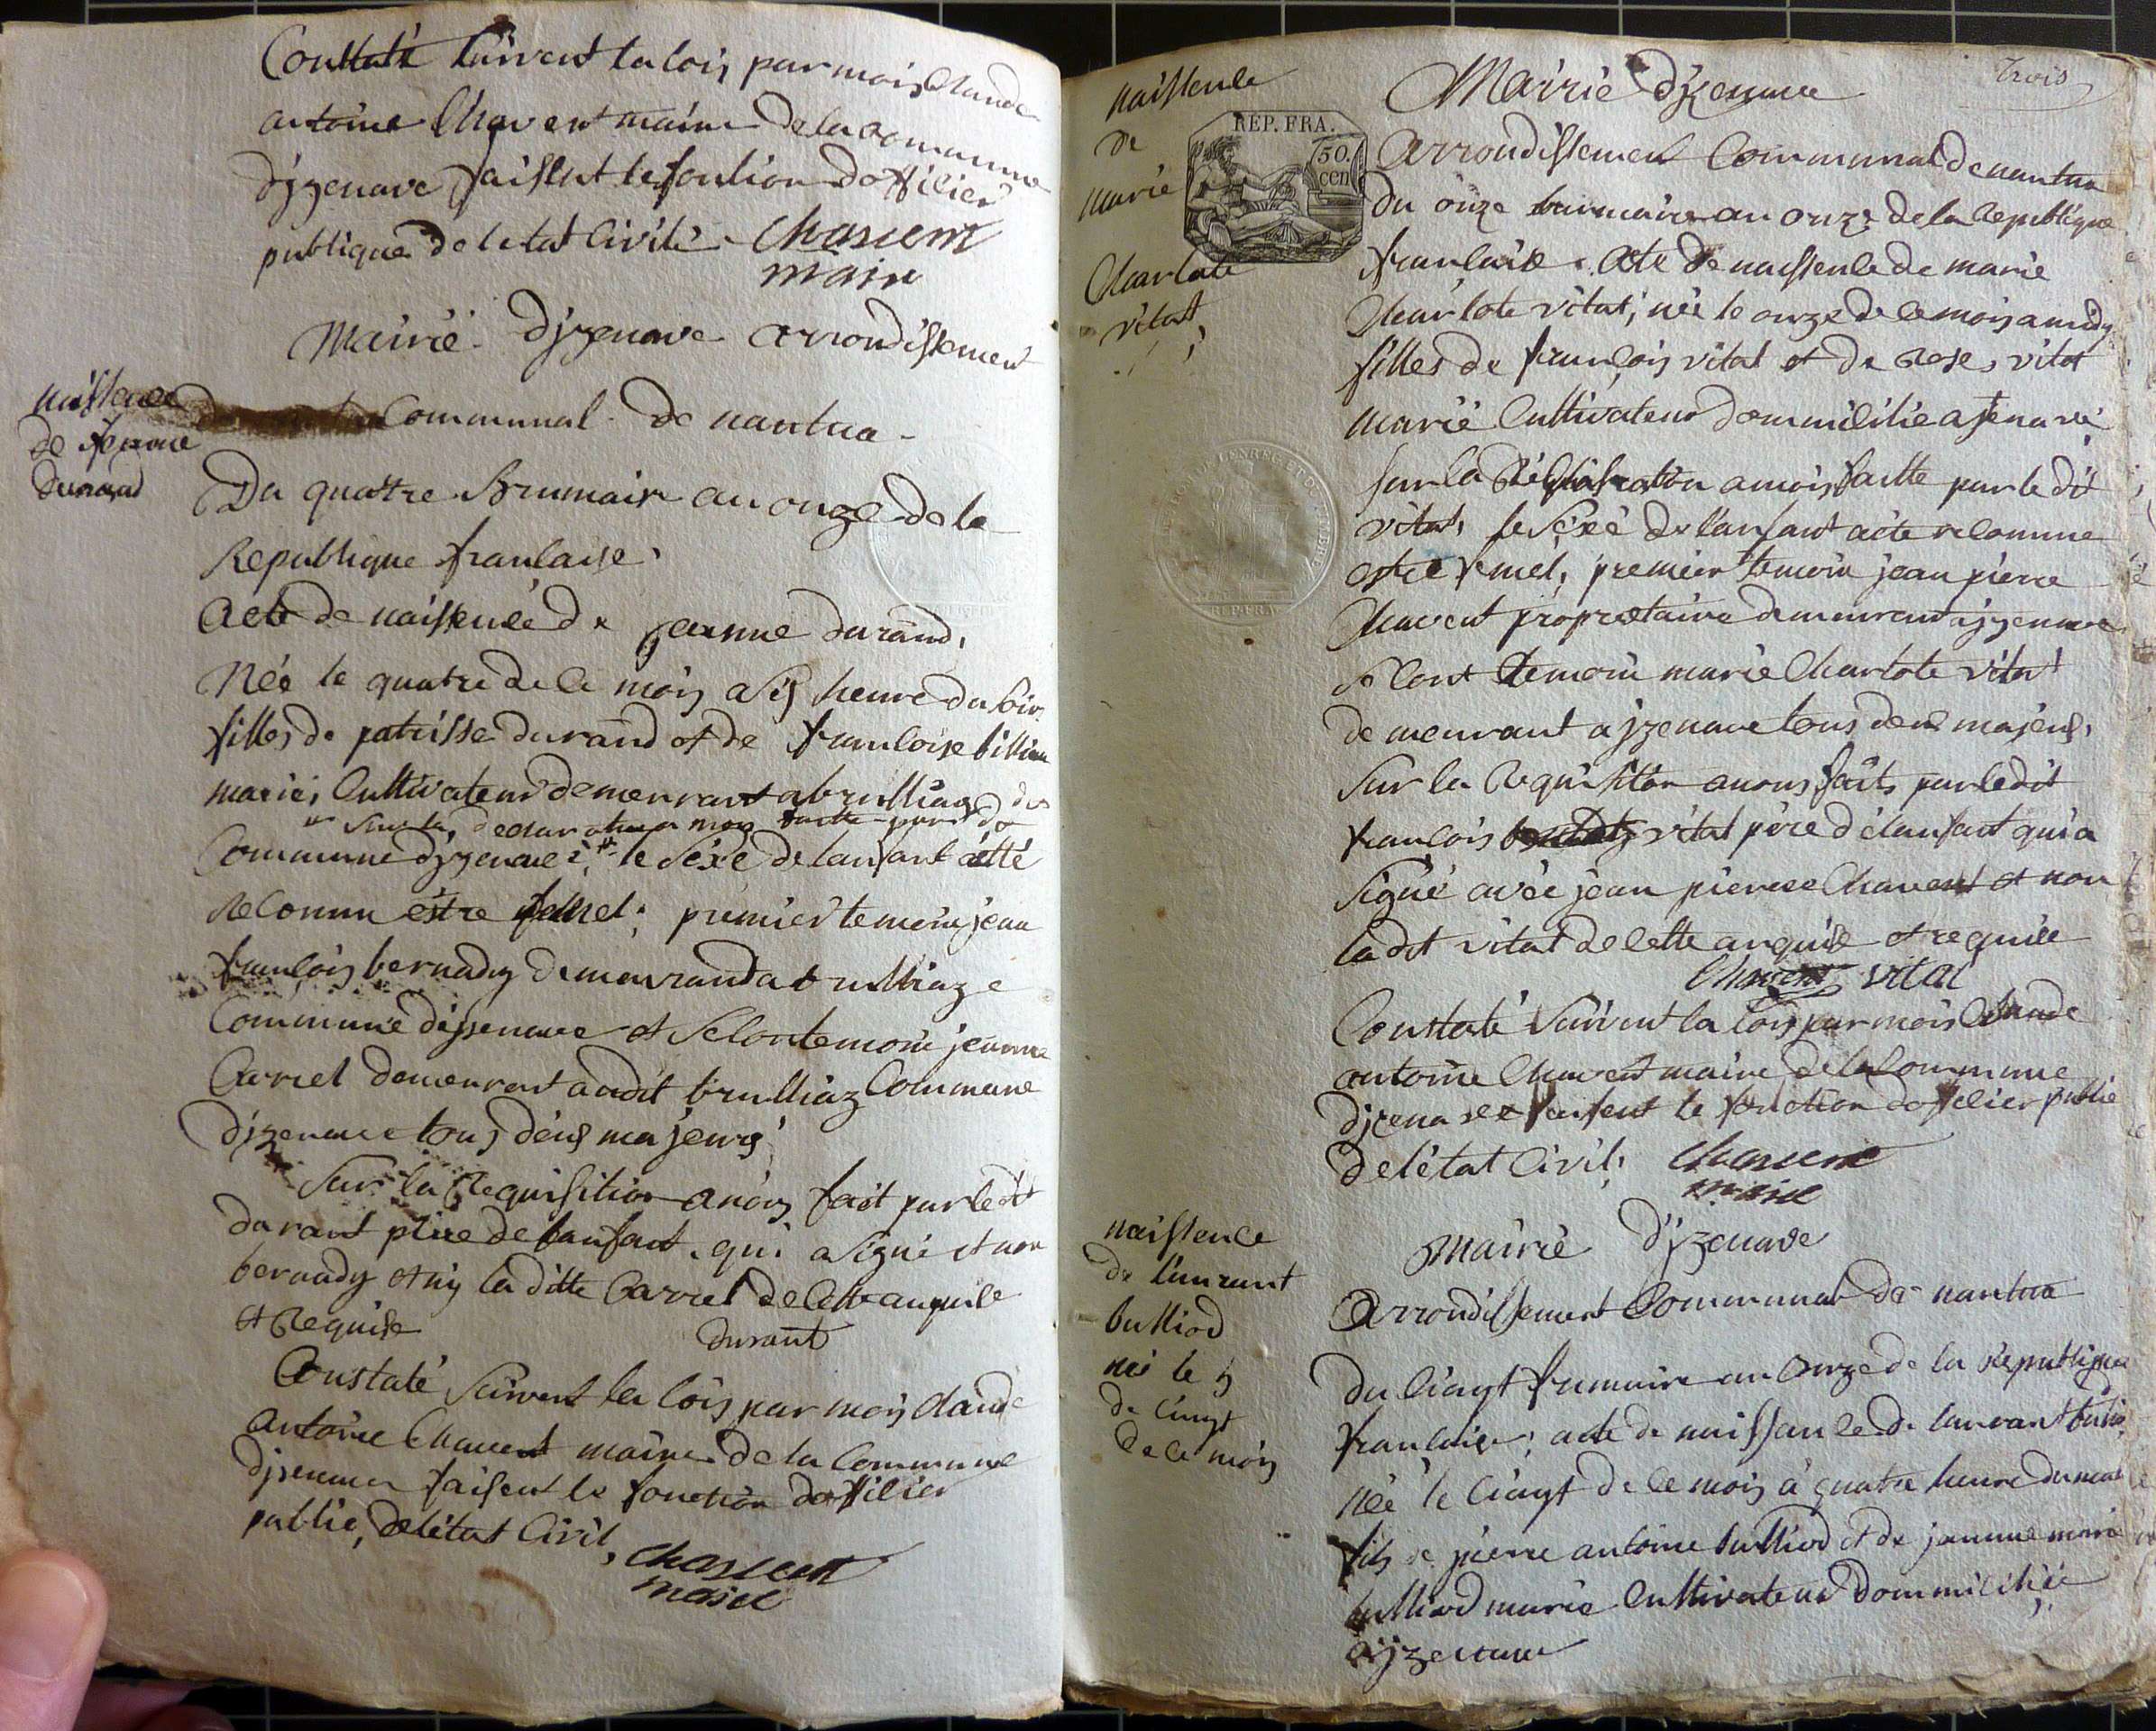 Constaté suivent la lois par mois Claude
antoine Chavent maire de la Commune
d'jzenave faissent le fontion d'officier
publique de letat Civile Chavent
maire
Mairie d'jzenave arrondissement
Communal de nantua
naissence
de jeanne
durand
Du quatre Brumair an onze de la
Republique francaise,
acte de naissence de jeanne durand,
Née le quatre de ce mois a sis heure du soir
filles de patrisse durand et de francoise billion
marié, Cultivateur demeurant a brulliaz
sur la declaration a mois faitte par
Commune d'jzenave le sexe de lanfant a etté
reConnu estre femel, premier temoin jean
françois bernady demeurand a brulliaz
Commune d'jzenave et seCont temoin jeanne
Carrel demeurent audit brulliaz Commune
d'jzenave tous deus majeurs
Sur la Requisition a nois fait par le dit
durant père de lanfant qui a signé et non
bernady et ny la ditte Carrel de Cette anquise
et Requise
durant
Constaté suivent la lois par mois Claude
antoine Chavent maire de la Commune
d'jzenave faisent le fonction d'officier
public, de létat Civil, Chavent
maire
trois
naissence
de
marie
Charlote
vitat
REP. FRA.
50.
cen
Mairie d'jzenave
arrondissement Communal de nantua
Du onze brumaire an onze de la Republique
francaise acte de naissence de marie
Charlote vitat, née le onze de ce mois a midy
filles de françois vitat et de Rose vitot
marié Cultivateur dommicilié a jzenave
sur la a mois faitte par le dit
vitat, le sexé de l'anfant aete reConnue
estre femel, premier temoin jean pierre
Chavent propriétaire demeurent a jzenave
seCont temoin marie Charlote vitat
demeurant a jzenave tous deus majeus,
Sur la Requisition a nous faits par le dit
françois vitat père de lanfant qui a
signé avée jean pierre Chavent et non
la dit vitat de Cette anquise et requise
Chavent vitat
Constaté suivent la lois par mois Claude
antoine Chavent maire de la Commune
d'jzenave faisent le fonction d'officier public
de létat Civil, Chavent
maire
naissence
de laurant
bulliod
né le
de vingt
de Ce mois
Mairié d'jzenave
arrondissement Communal de nantua
du vingt frimaire an onze de la Republique
francaise, acte de naissance de laurant
Née le vingt de Ce mois à quatre heure du matin
fils de pierre antoine bulliod et de jeanne marie
bulliod marié Cultivateur dommicilié
a jzenave